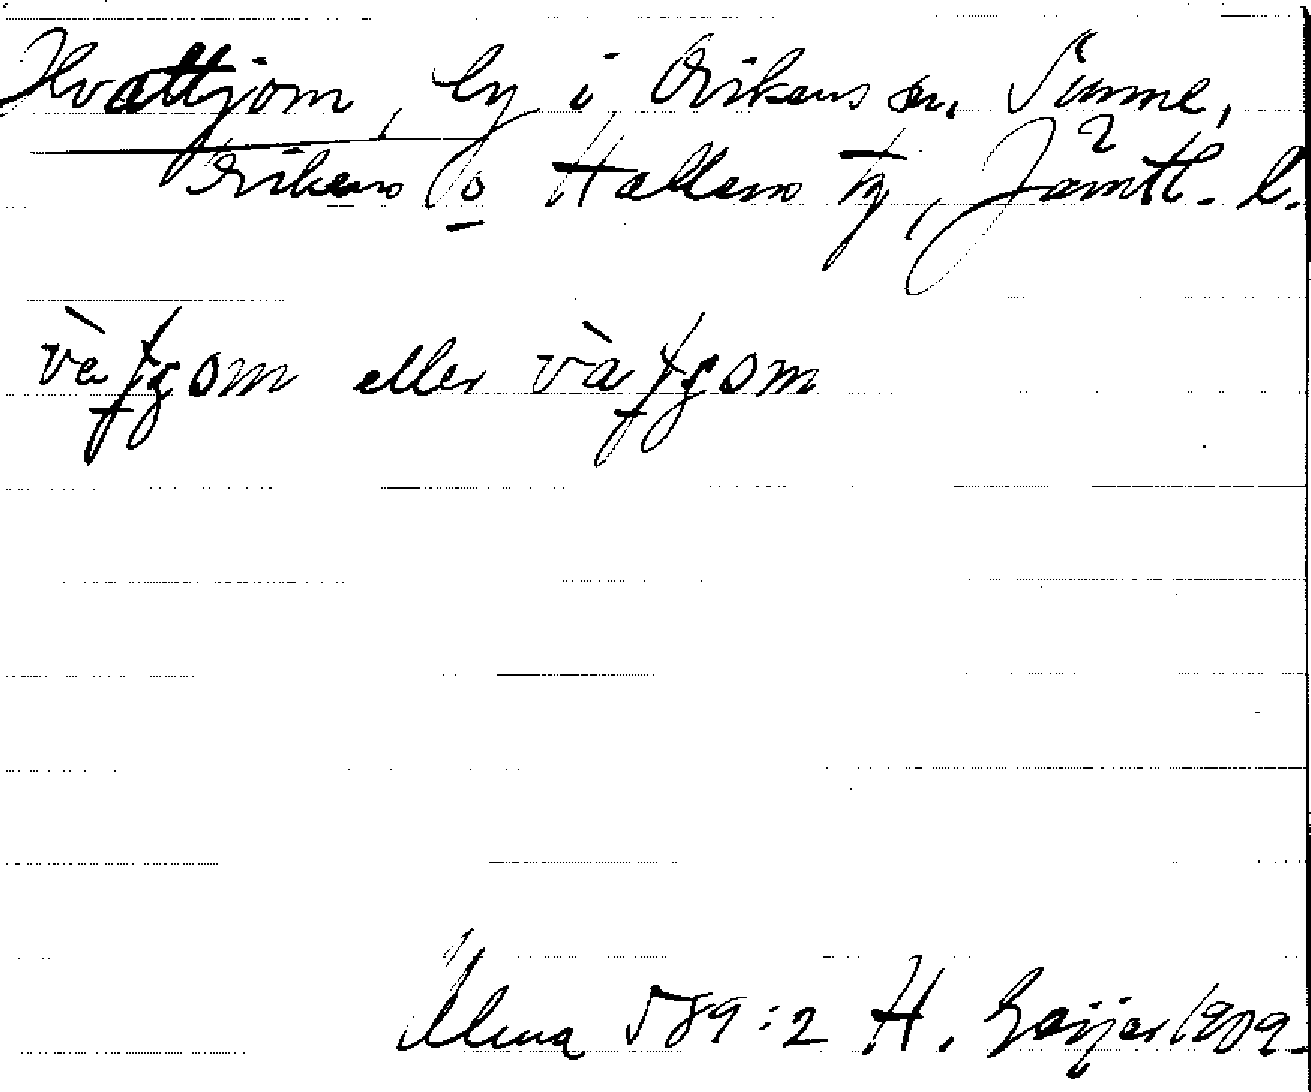 Kvattjom, by i Vikens sn, Sunne,
Vikens o Hallens tg, Jämtl. l.
vàtgom eller vàtgom
Ulma 589:2 H. Geijer 1909.